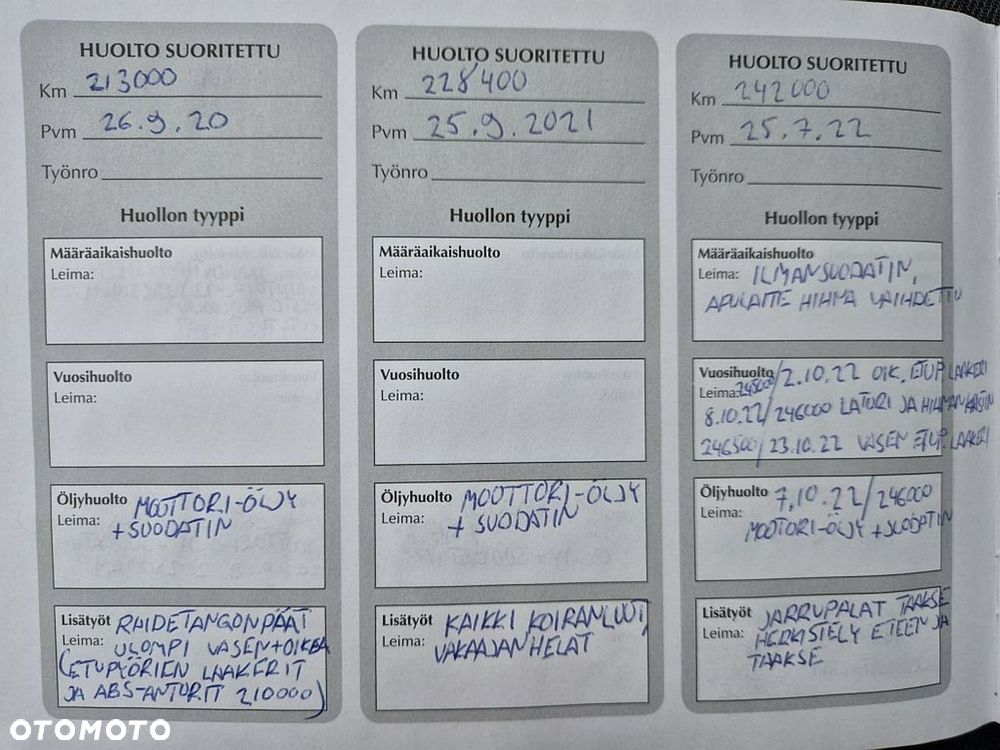 HUOLTO SUORITETTU
Km 213000
Pvm 26.9.20
Työnro
Huollon tyyppi
Määräaikaishuolto
Leima:
Vuosihuolto
Leima:
Öljyhuolto MOOTTORI-ÖLJY
Leima: +SUODATIN
Lisätyöt RAIDETANGONPÄÄT
Leima: ULOMPI VASEN+OIKEA
(ETUPYÖRIEN LAAKERIT
JA ABS-ANTURIT 210000)
HUOLTO SUORITETTU
Km 228400
Pvm 25.9.2021
Työnro
Huollon tyyppi
Määräaikaishuolto
Leima:
Vuosihuolto
Leima:
Öljyhuolto MOOTTORI-ÖLJY
Leima: + SUODATIN
Lisätyöt KAIKKI KOIRANLUUT,
Leima: VAKAAJANHELAT
HUOLTO SUORITETTU
Km 242000
Pvm 25.7.22
Työnro
Huollon tyyppi
Määräaikaishuolto
Leima: ILMANSUODATIN,
APULAITE HIHNA VAIHDETTU
Vuosihuolto
Leima: 245000/2.10.22 OIK. ETUP. LAAKERI
8.10.22/246000 LATURI JA
246500/23.10.22 VASEN ETUP. LAAKERI
Öljyhuolto 7.10.22/246000
Leima: MOOTORI-ÖLJY +SUODATIN
Lisätyöt JARRUPALAT TAAKSE
Leima: HERKISTELY ETEEN JA
TAAKSE
OTOMOTO